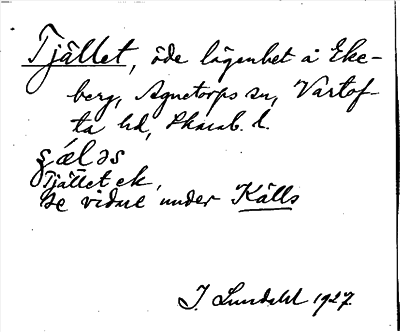 Tjället, öde lägenhet å Eke-
berg, Agnetorps sn, Vartof-
ta hd, Skarab. l.
Tjället ek.
Se vidare under Källs
I. Lundahl 1927.